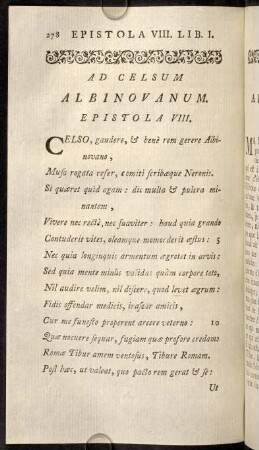 278 EPISTOLA VIII. LIB. I.
AD CELSUM
ALBINOVANUM.
EPISTOLA VIII.
CELSO, gaudere, & benè rem gerere Albi-
novano,
Musa rogata refer, comiti scribæque Neronis.
Si quæret quid agam: dic multa & pulcra mi-
nantem,
Vivere nec rectè, nec suaviter: haud quia grando
Contuderit vites, oleamque momorderit æstus: 5
Nec quia longinquis armentum ægrotet in arvis:
Sed quia mente minùs validus quàm corpore toto,
Nil audire velim, nil discere, quod levet ægrum:
Fidis offendar medicis, irascar amicis,
Cur me funesto properent arcere veterno: 10
Quæ nocuere sequar, fugiam quæ profore credam:
Romæ Tibur amem ventosus, Tibure Romam.
Post hæc, ut valeat, quo pacto rem gerat & se:
Ut